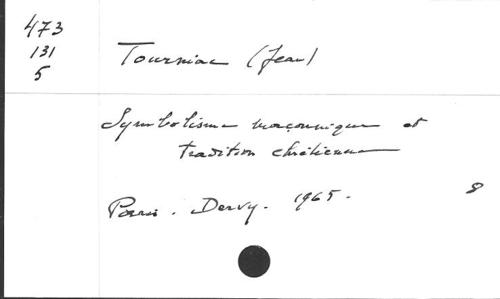 473
131
5
Tourniac (Jean)
Symbolisme maçonnique et
tradition chrétienne
Paris. Dervy. 1965.
8